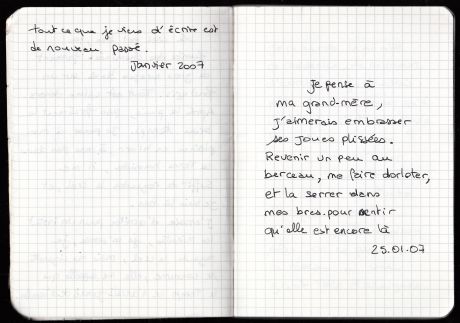 tout ce que je viens d'écrire est
de nouveau passé.
Janvier 2007
je pense à
ma grand-mère,
j'aimerais embrasser
ses joues plissées.
Revenir un peu au
berceau, me faire dorloter,
et la serrer dans
mes bras pour sentir
qu'elle est encore là
25.01.07